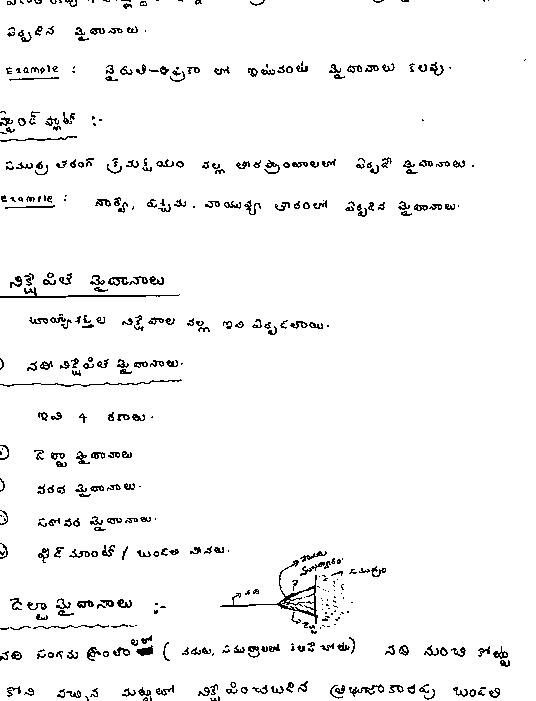 ఏర్పడిన మైదానాలు.
Example : నైరుతి-ఆఫ్రికా లో ఇటువంటి మైదానాలు కలవు.
స్ట్రాండ్ ఫ్లాట్ :-
సముద్ర తరంగ క్రమక్షయం వల్ల తీరప్రాంతాలలో ఏర్పడే మైదానాలు.
Example : నార్వే, పశ్చిమ. వాయువ్య తీరంలో ఏర్పడిన మైదానాలు.
నిక్షేపిత మైదానాలు
బాహ్యశక్తుల నిక్షేపాల వల్ల ఇవి ఏర్పడతాయి.
నదీ నిక్షేపిత మైదానాలు.
ఇవి 4 రకాలు.
డెల్టా మైదానాలు
వరద మైదానాలు.
సరోవర మైదానాలు.
ఫిడ్ మాంట్ / బురద నేలలు.
నది
సముద్రం
డెల్టా మైదానాలు :-
నది సంగమ ప్రాంతాలలో ( నదులు, సముద్రాలలో కలిసే చోటు) నది నుంచి కొట్టు
కొని వచ్చిన మట్టితో నిక్షేపించబడిన త్రిభుజాకారపు బురద